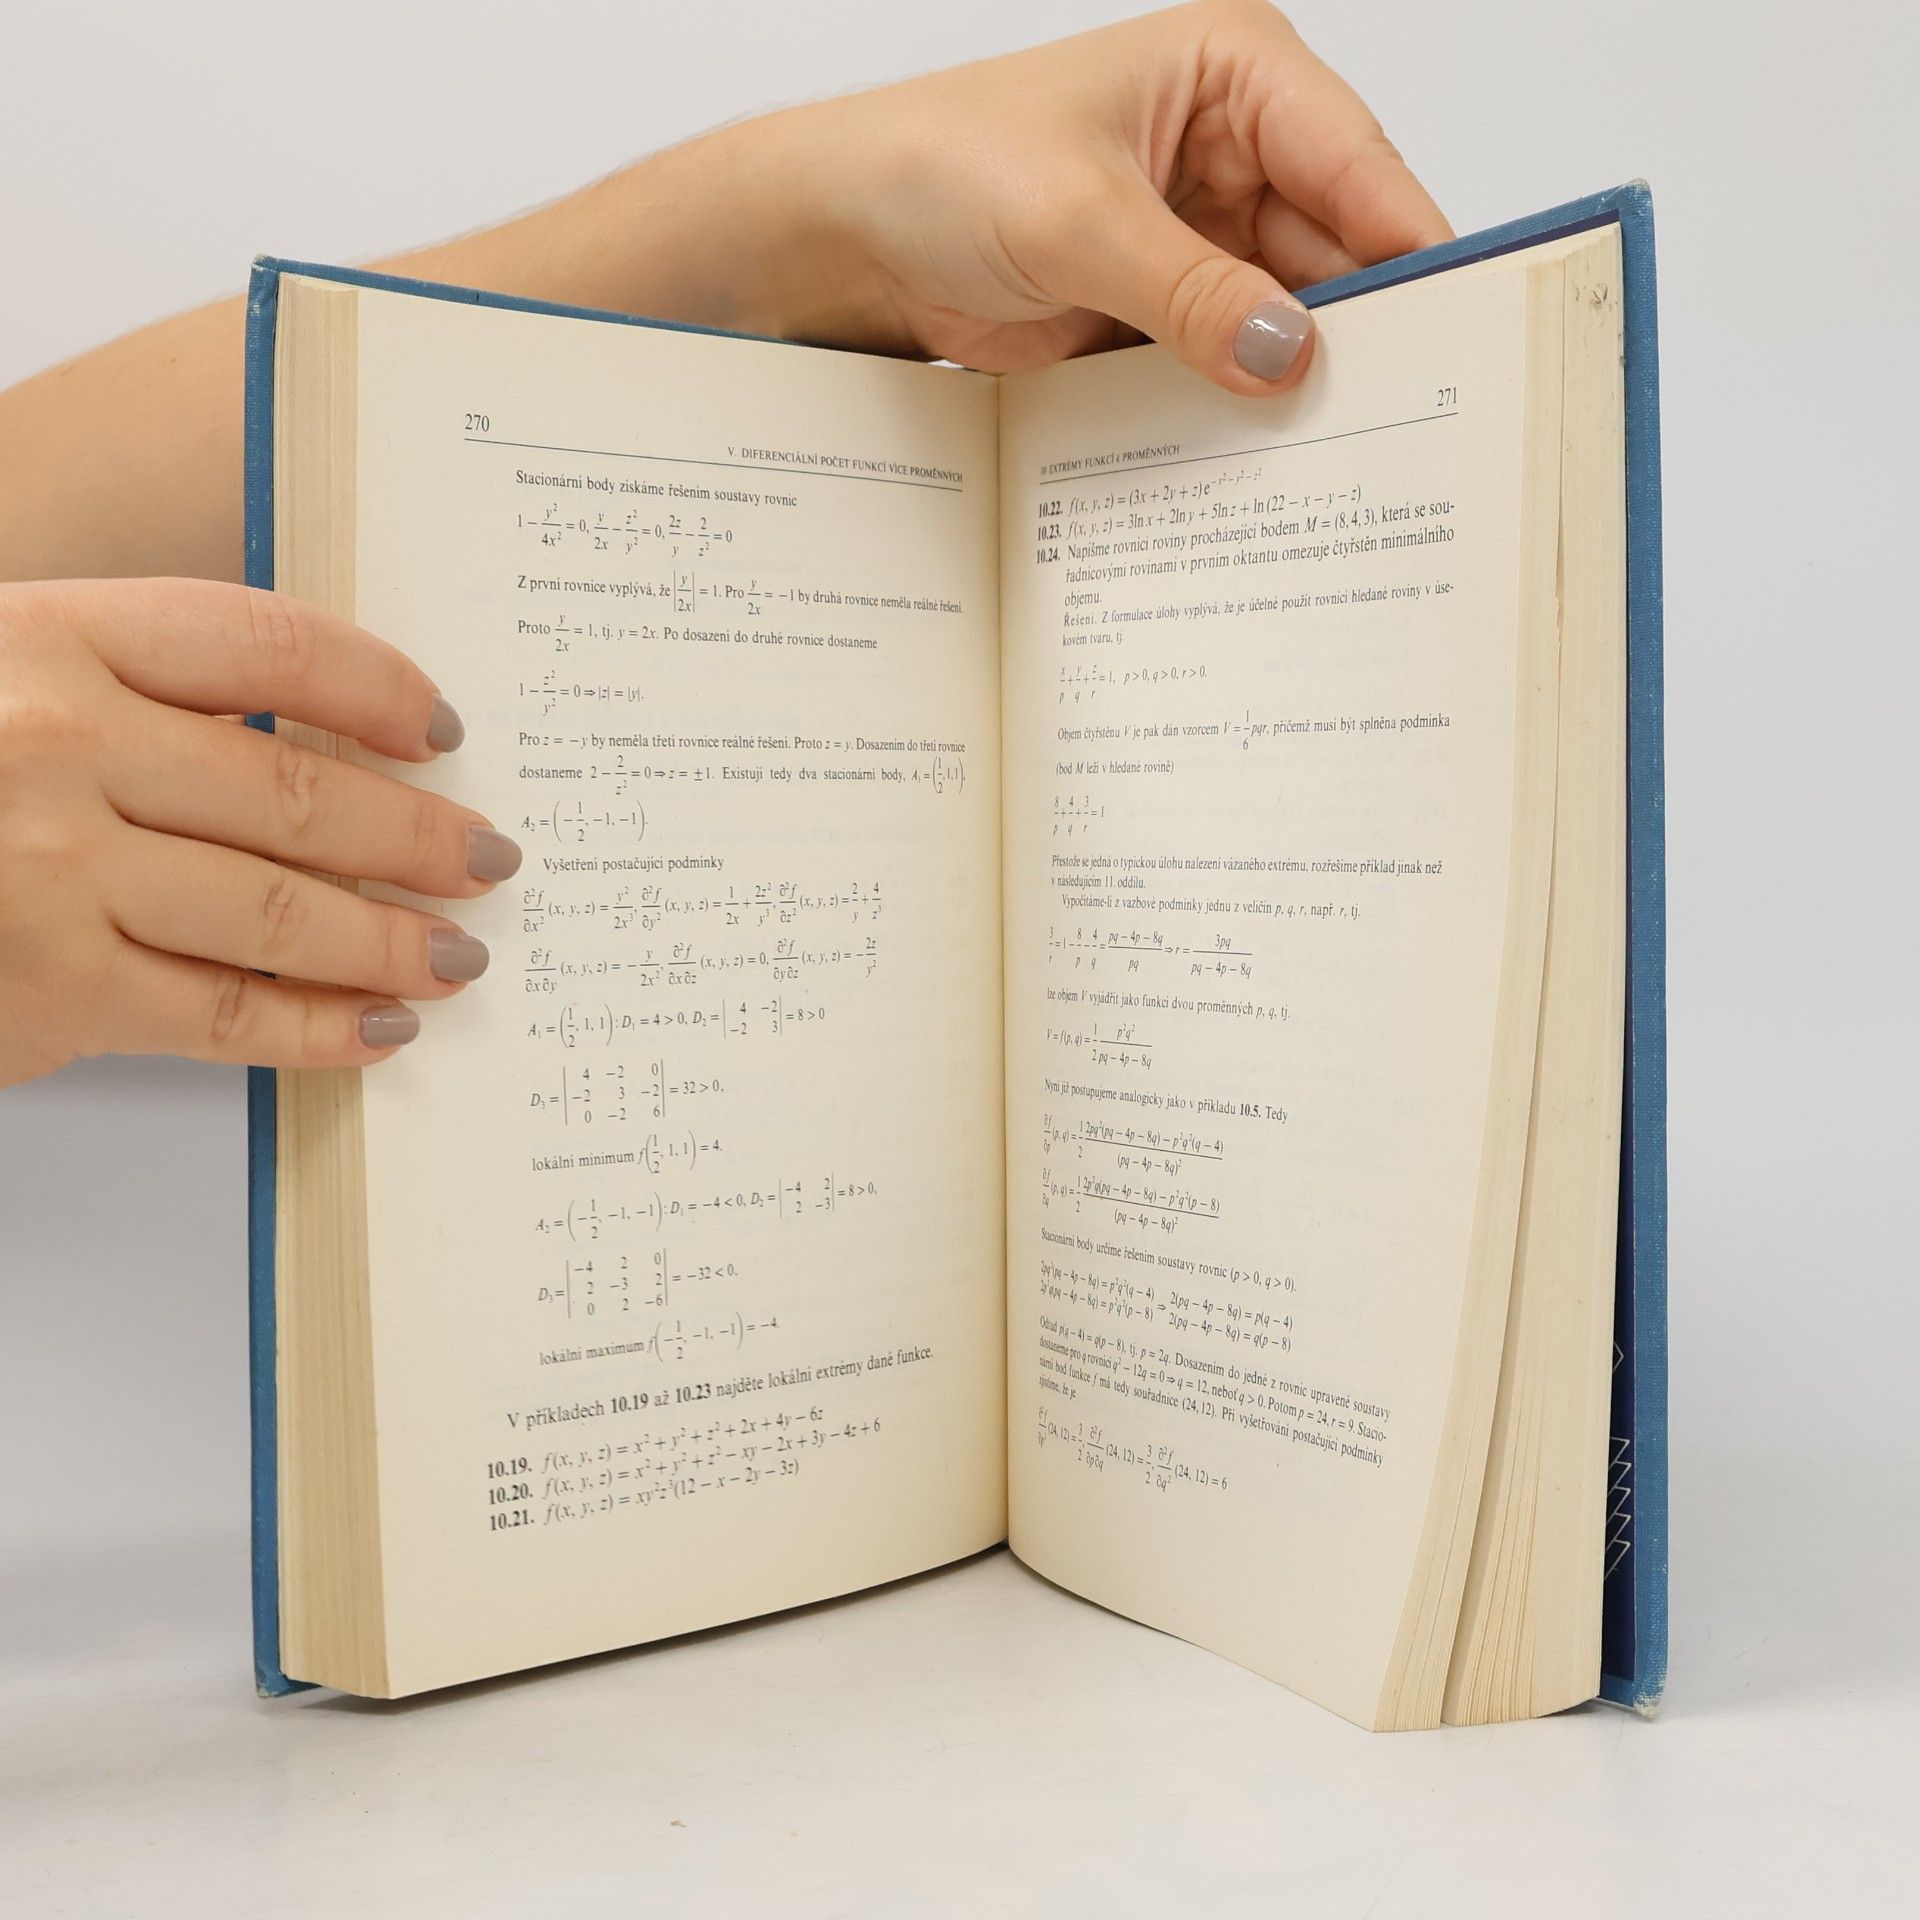 270
V. DIFERENCIÁLNÍ POČET FUNKCÍ VÍCE PROMĚNNÝCH
Stacionární body získáme řešením soustavy rovnic
1 − y²/4x² = 0, y/2x − z²/y² = 0, 2z/y − 2/z² = 0
Z první rovnice vyplývá, že |y/2x| = 1. Pro y/2x = −1 by druhá rovnice neměla reálné řešení.
Proto y/2x = 1, tj. y = 2x. Po dosazení do druhé rovnice dostaneme
1 − z²/y² = 0 ⇒ |z| = |y|.
Pro z = −y by neměla třetí rovnice reálné řešení. Proto z = y. Dosazením do třetí rovnice
dostaneme 2 − 2/z² = 0 ⇒ z = ±1. Existují tedy dva stacionární body, A₁ = (1/2, 1, 1),
A₂ = (−1/2, −1, −1).
Vyšetření postačující podmínky
∂²f/∂x² (x, y, z) = y²/2x³, ∂²f/∂y² (x, y, z) = 1/2x + 2z²/y³, ∂²f/∂z² (x, y, z) = 2/y + 4/z³
∂²f/∂x∂y (x, y, z) = −y/2x², ∂²f/∂x∂z (x, y, z) = 0, ∂²f/∂y∂z (x, y, z) = −2z/y²
A₁ = (1/2, 1, 1): D₁ = 4 > 0, D₂ = | 4 −2 |
| −2 3 | = 8 > 0
D₃ = | 4 −2 0 |
| −2 3 −2 | = 32 > 0,
| 0 −2 6 |
lokální minimum f(1/2, 1, 1) = 4.
A₂ = (−1/2, −1, −1): D₁ = −4 < 0, D₂ = | −4 2 |
| 2 −3 | = 8 > 0,
D₃ = | −4 2 0 |
| 2 −3 2 | = −32 < 0,
| 0 2 −6 |
lokální maximum f(−1/2, −1, −1) = −4.
V příkladech 10.19 až 10.23 najděte lokální extrémy dané funkce.
10.19. f(x, y, z) = x² + y² + z² + 2x + 4y − 6z
10.20. f(x, y, z) = x² + y² + z² − xy − 2x + 3y − 4z + 6
10.21. f(x, y, z) = xy²z³(12 − x − 2y − 3z)
271
10 EXTRÉMY FUNKCÍ k PROMĚNNÝCH
10.22. f(x, y, z) = (3x + 2y + z)e^(−x² − y² − z²)
10.23. f(x, y, z) = 3ln x + 2ln y + 5ln z + ln (22 − x − y − z)
10.24. Napišme rovnici roviny procházející bodem M = (8, 4, 3), která se sou-
řadnicovými rovinami v prvním oktantu omezuje čtyřstěn minimálního
objemu.
Řešení. Z formulace úlohy vyplývá, že je účelné použít rovnici hledané roviny v úse-
kovém tvaru, tj.
x/p + y/q + z/r = 1, p > 0, q > 0, r > 0.
Objem čtyřstěnu V je pak dán vzorcem V = 1/6 pqr, přičemž musí být splněna podmínka
(bod M leží v hledané rovině)
8/p + 4/q + 3/r = 1
Přestože se jedná o typickou úlohu nalezení vázaného extrému, rozřešíme příklad jinak než
v následujícím 11. oddílu.
Vypočítáme-li z vazbové podmínky jednu z veličin p, q, r, např. r, tj.
3/r = 1 − 8/p − 4/q = (pq − 4p − 8q)/pq ⇒ r = 3pq/(pq − 4p − 8q)
lze objem V vyjádřit jako funkci dvou proměnných p, q, tj.
V = f(p, q) = 1/2 p²q²/(pq − 4p − 8q)
Nyní již postupujeme analogicky jako v příkladu 10.5. Tedy
∂f/∂p (p, q) = 1/2 (2pq²(pq − 4p − 8q) − p²q²(q − 4))/(pq − 4p − 8q)²
∂f/∂q (p, q) = 1/2 (2p²q(pq − 4p − 8q) − p²q²(p − 8))/(pq − 4p − 8q)²
Stacionární body určíme řešením soustavy rovnic (p > 0, q > 0).
2pq²(pq − 4p − 8q) = p²q²(q − 4) ⇒ 2(pq − 4p − 8q) = p(q − 4)
2p²q(pq − 4p − 8q) = p²q²(p − 8) 2(pq − 4p − 8q) = q(p − 8)
Odtud p(q − 4) = q(p − 8), tj. p = 2q. Dosazením do jedné z rovnic upravené soustavy
dostaneme pro q rovnici q² − 12q = 0 ⇒ q = 12, neboť q > 0. Potom p = 24, r = 9. Stacio-
nární bod funkce f má tedy souřadnice (24, 12). Při vyšetřování postačující podmínky
zjistíme, že je
∂²f/∂p² (24, 12) = 3/2, ∂²f/∂p∂q (24, 12) = 3/2, ∂²f/∂q² (24, 12) = 6